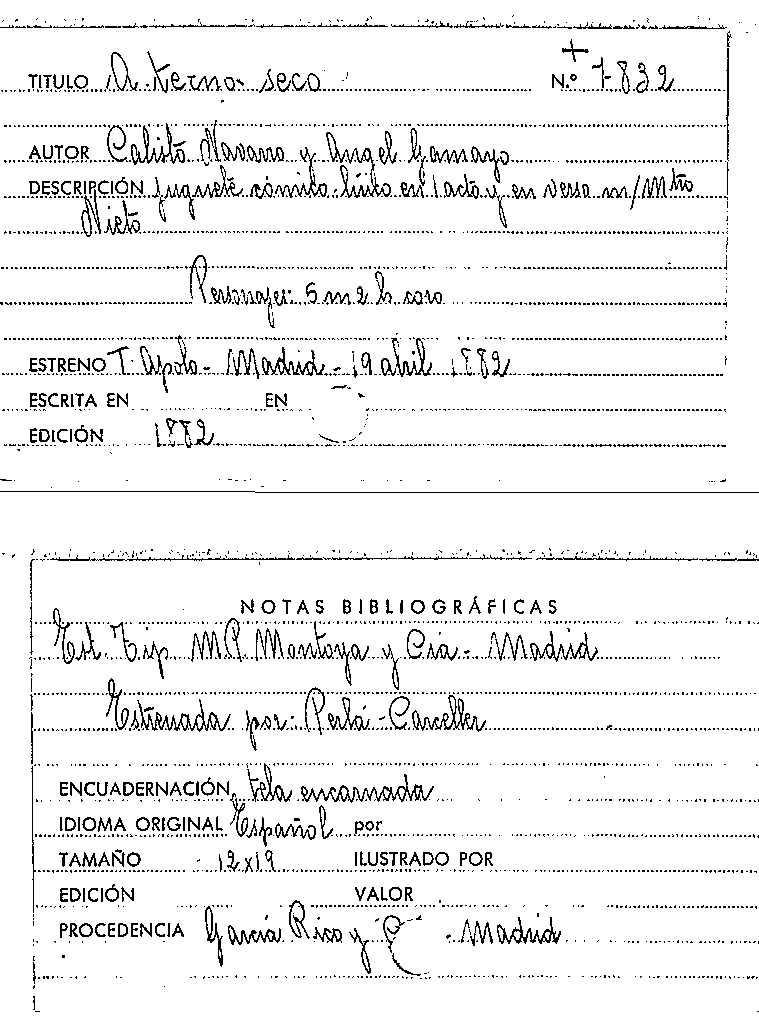 +
TITULO A terno seco Nº 7-832
AUTOR Calisto Navarro y Angel Gamayo
DESCRIPCIÓN juguete cómico-lírico en 1 acto y en verso m/Mtro
Nieto
Personajes: 5 m 2 h coro
ESTRENO T. Apolo - Madrid - 19 abril 1882
ESCRITA EN EN
EDICIÓN 1882
NOTAS BIBLIOGRÁFICAS
Est. Tip M.P. Montoya y Cía - Madrid
Estrenada por: Perlá - Carceller
ENCUADERNACIÓN tela encarnada
IDIOMA ORIGINAL Español por
TAMAÑO 12x19 ILUSTRADO POR
EDICIÓN VALOR
PROCEDENCIA García Rico y Cª - Madrid